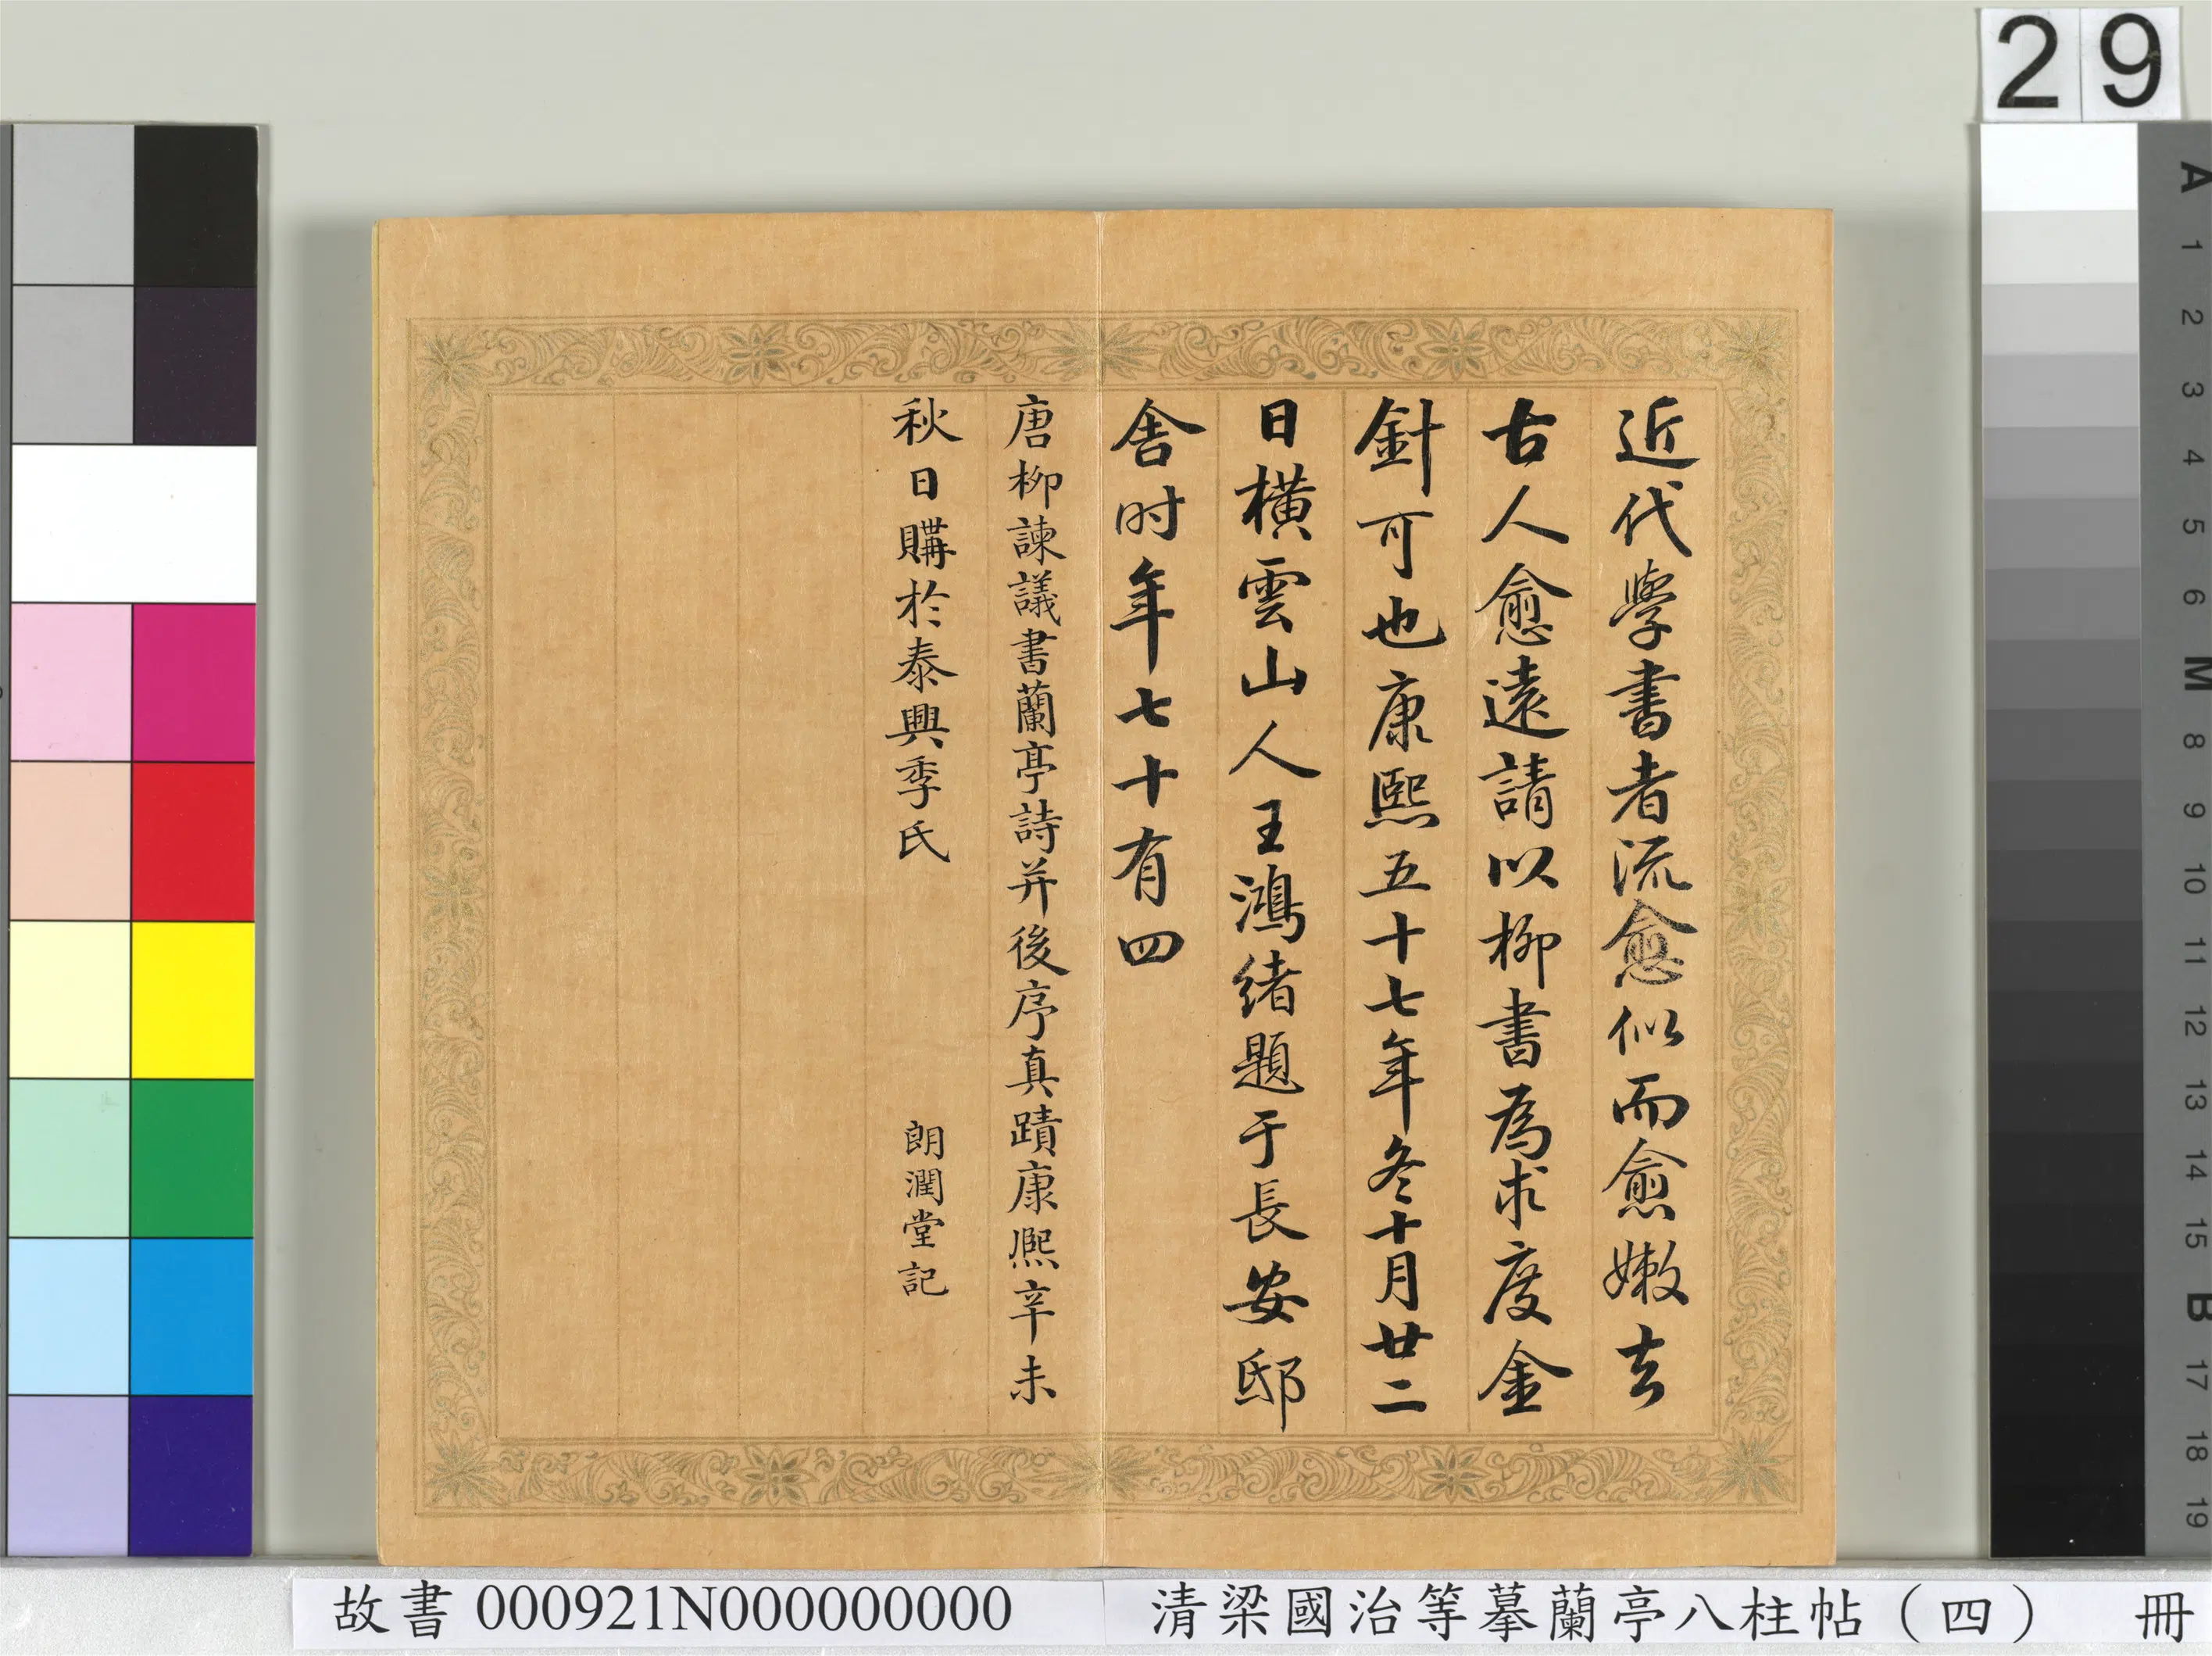 近代學書者流愈似而愈嫩去
古人愈遠請以柳書為求度金
針可也康熙五十七年冬十月廿二
日橫雲山人王鴻緒題于長安邸
舍时年七十有四
唐柳諫議書蘭亭詩并後序真蹟康熈辛未
秋日購於泰興季氏
朗潤堂記
29
A
1
2
3
4
5
6
M
8
9
10
11
12
13
14
15
B
17
18
19
故書 000921N000000000 清梁國治等摹蘭亭八柱帖（四） 冊